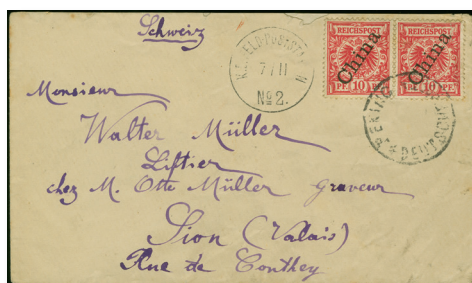 Schweiz
K.D. FELD-POSTSTATION
7/11
No 2.
REICHSPOST
China
10 PF. 10
REICHSPOST
China
10 PF. 10
PEKING
DEUTSCHE
Monsieur
Walter Müller
Liftier
chez M. Otto Müller graveur
Sion (Valais)
Rue de Conthey